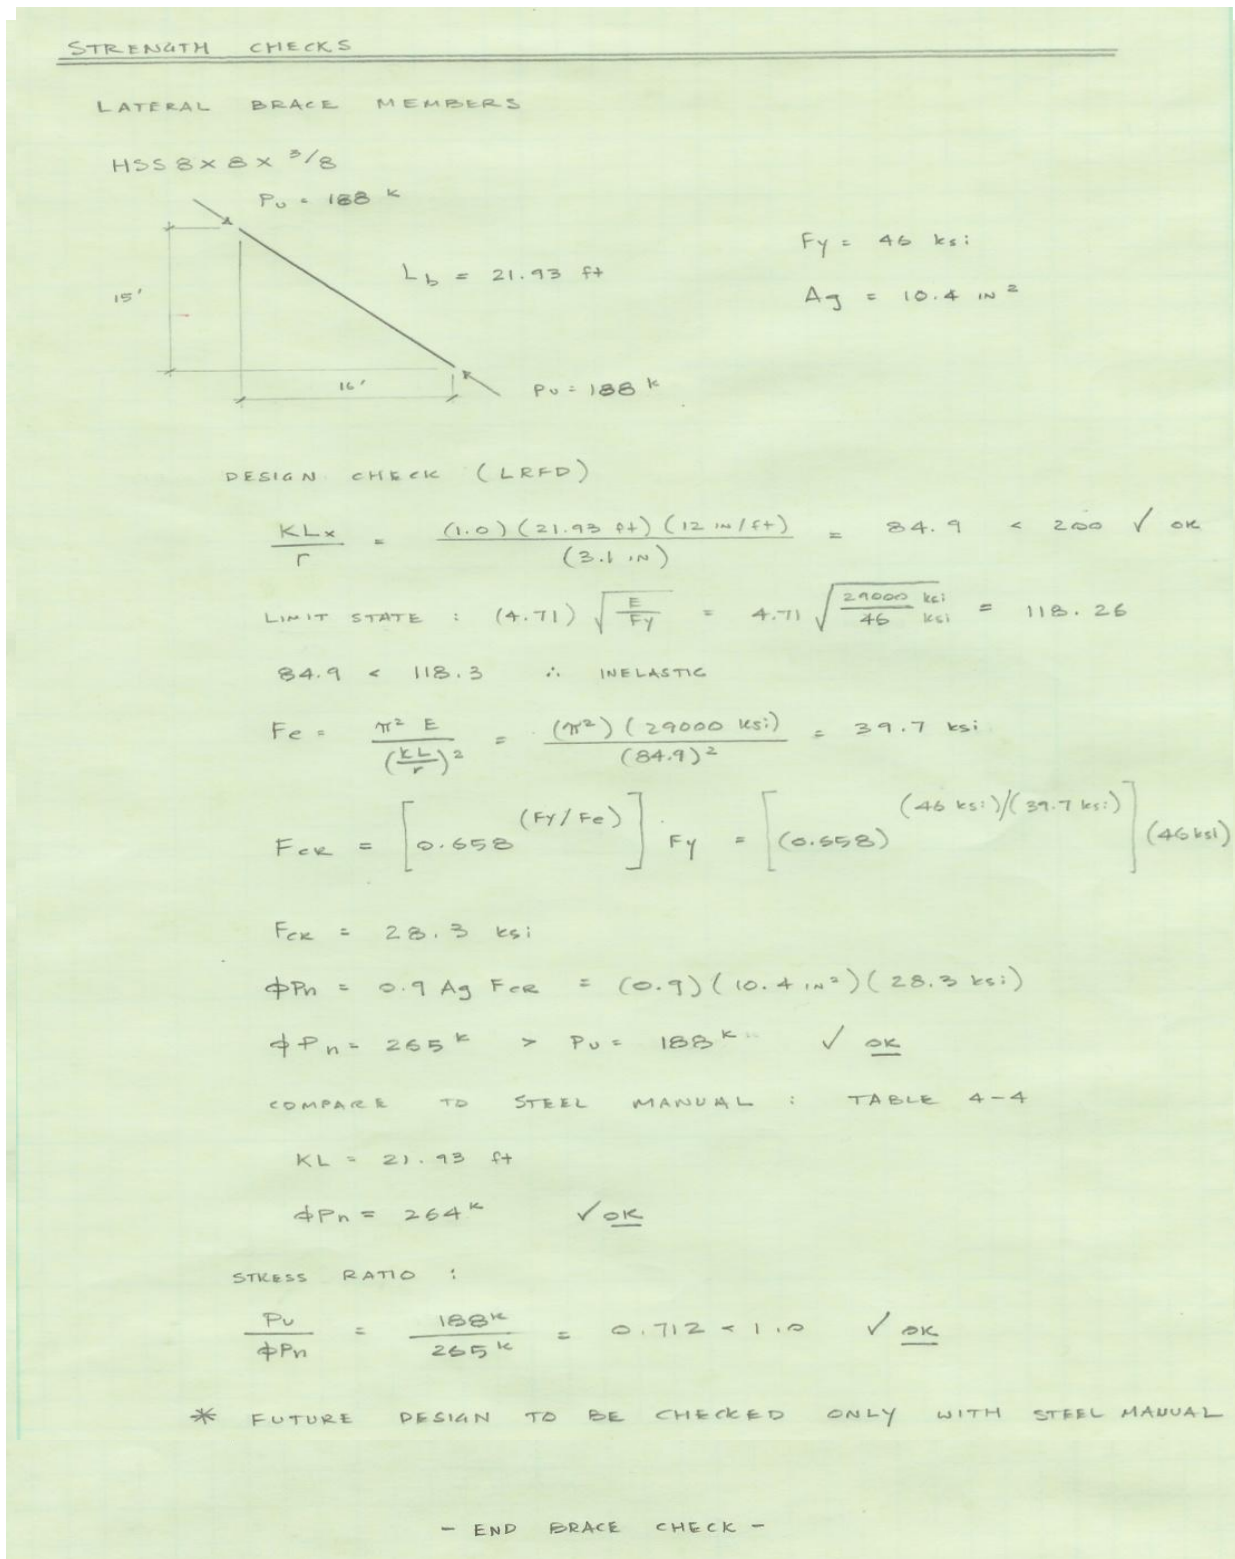 STRENGTH CHECKS
LATERAL BRACE MEMBERS
HSS 8 x 8 x 3/8
Pu = 188 k
Fy = 46 ksi
Lb = 21.93 ft
Ag = 10.4 IN²
15'
16'
Pu = 188 k
DESIGN CHECK (LRFD)
KLx / r = (1.0)(21.93 ft)(12 in/ft) / (3.1 IN) = 84.9 < 200 ✓ OK
LIMIT STATE : (4.71) √(E/Fy) = 4.71 √(29000 ksi / 46 ksi) = 118.26
84.9 < 118.3 ∴ INELASTIC
Fe = π² E / (KL/r)² = (π²)(29000 ksi) / (84.9)² = 39.7 ksi
FCR = [0.658^(Fy/Fe)] Fy = [(0.658)^(46 ksi)/(39.7 ksi)] (46 ksi)
FCR = 28.3 ksi
ϕPn = 0.9 Ag FCR = (0.9)(10.4 IN²)(28.3 ksi)
ϕPn = 265 k > Pu = 188 k ✓ OK
COMPARE TO STEEL MANUAL : TABLE 4-4
KL = 21.93 ft
ϕPn = 264 k ✓ OK
STRESS RATIO :
Pu / ϕPn = 188 k / 265 k = 0.712 < 1.0 ✓ OK
* FUTURE DESIGN TO BE CHECKED ONLY WITH STEEL MANUAL
- END BRACE CHECK -